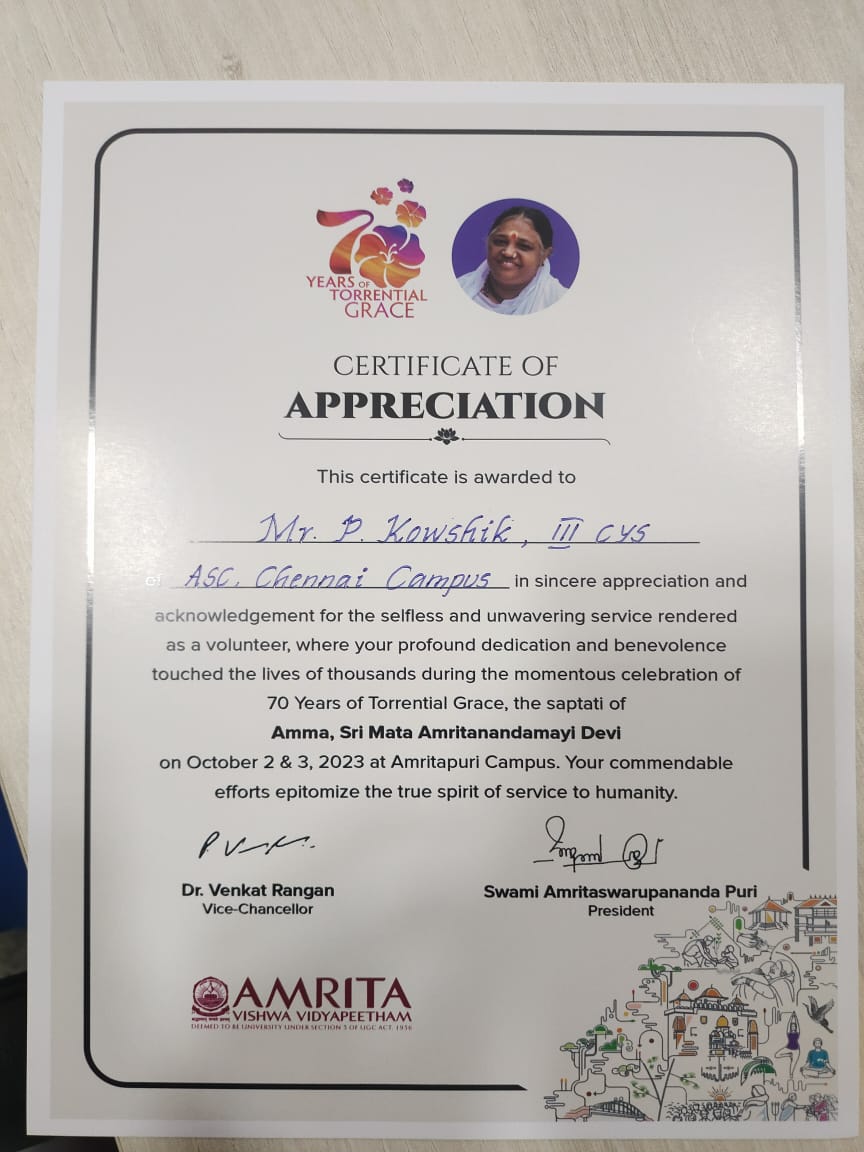 70
YEARS OF
TORRENTIAL
GRACE
CERTIFICATE OF
APPRECIATION
This certificate is awarded to
Mr. P. Kowshik, III CYS
of ASC, Chennai Campus in sincere appreciation and
acknowledgement for the selfless and unwavering service rendered
as a volunteer, where your profound dedication and benevolence
touched the lives of thousands during the momentous celebration of
70 Years of Torrential Grace, the saptati of
Amma, Sri Mata Amritanandamayi Devi
on October 2 & 3, 2023 at Amritapuri Campus. Your commendable
efforts epitomize the true spirit of service to humanity.
Dr. Venkat Rangan
Vice-Chancellor
Swami Amritaswarupananda Puri
President
AMRITA
VISHWA VIDYAPEETHAM
DEEMED TO BE UNIVERSITY UNDER SECTION 3 OF UGC ACT, 1956